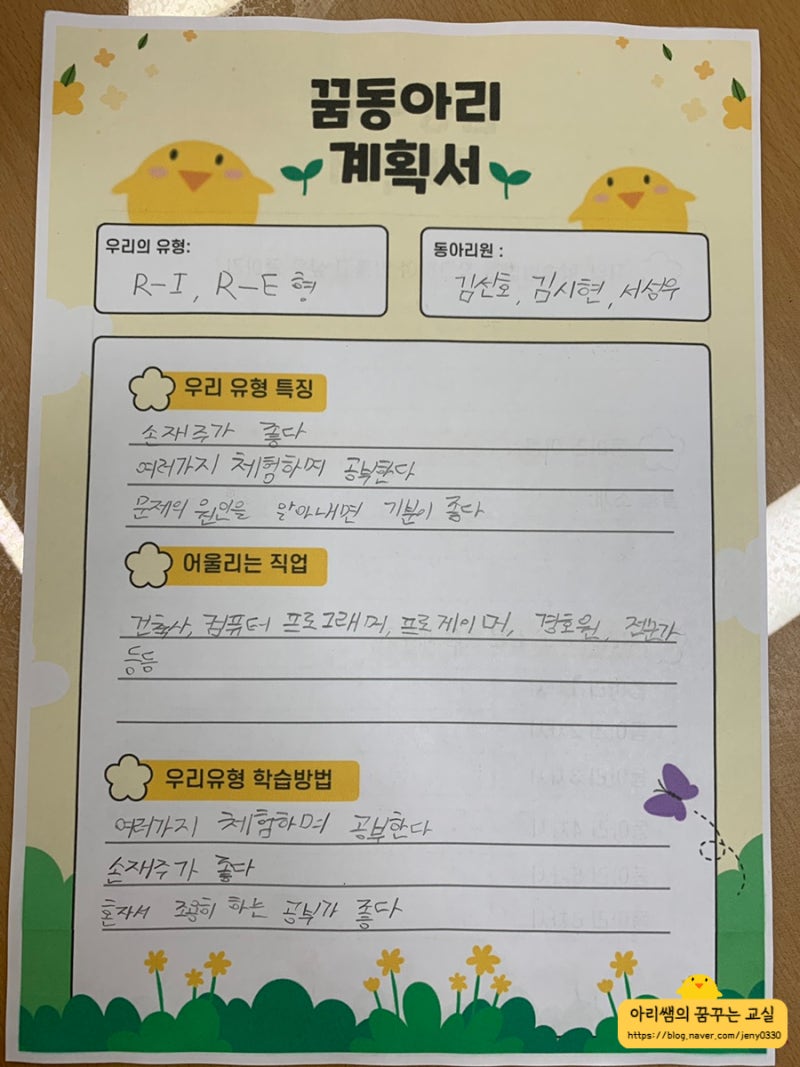 꿈동아리
계획서
우리의 유형:
R-I, R-E 형
동아리원 :
김선호, 김시현, 서성우
우리 유형 특징
손재주가 좋다
여러가지 체험하며 공부한다
문제의 원인을 알아내면 기분이 좋다
어울리는 직업
건축사, 컴퓨터 프로그래머, 프로게이머, 경호원, 전문가
등등
우리유형 학습방법
여러가지 체험하며 공부한다
손재주가 좋다
혼자서 조용히 하는 공부가 좋다
아리쌤의 꿈꾸는 교실
https://blog.naver.com/jeny0330